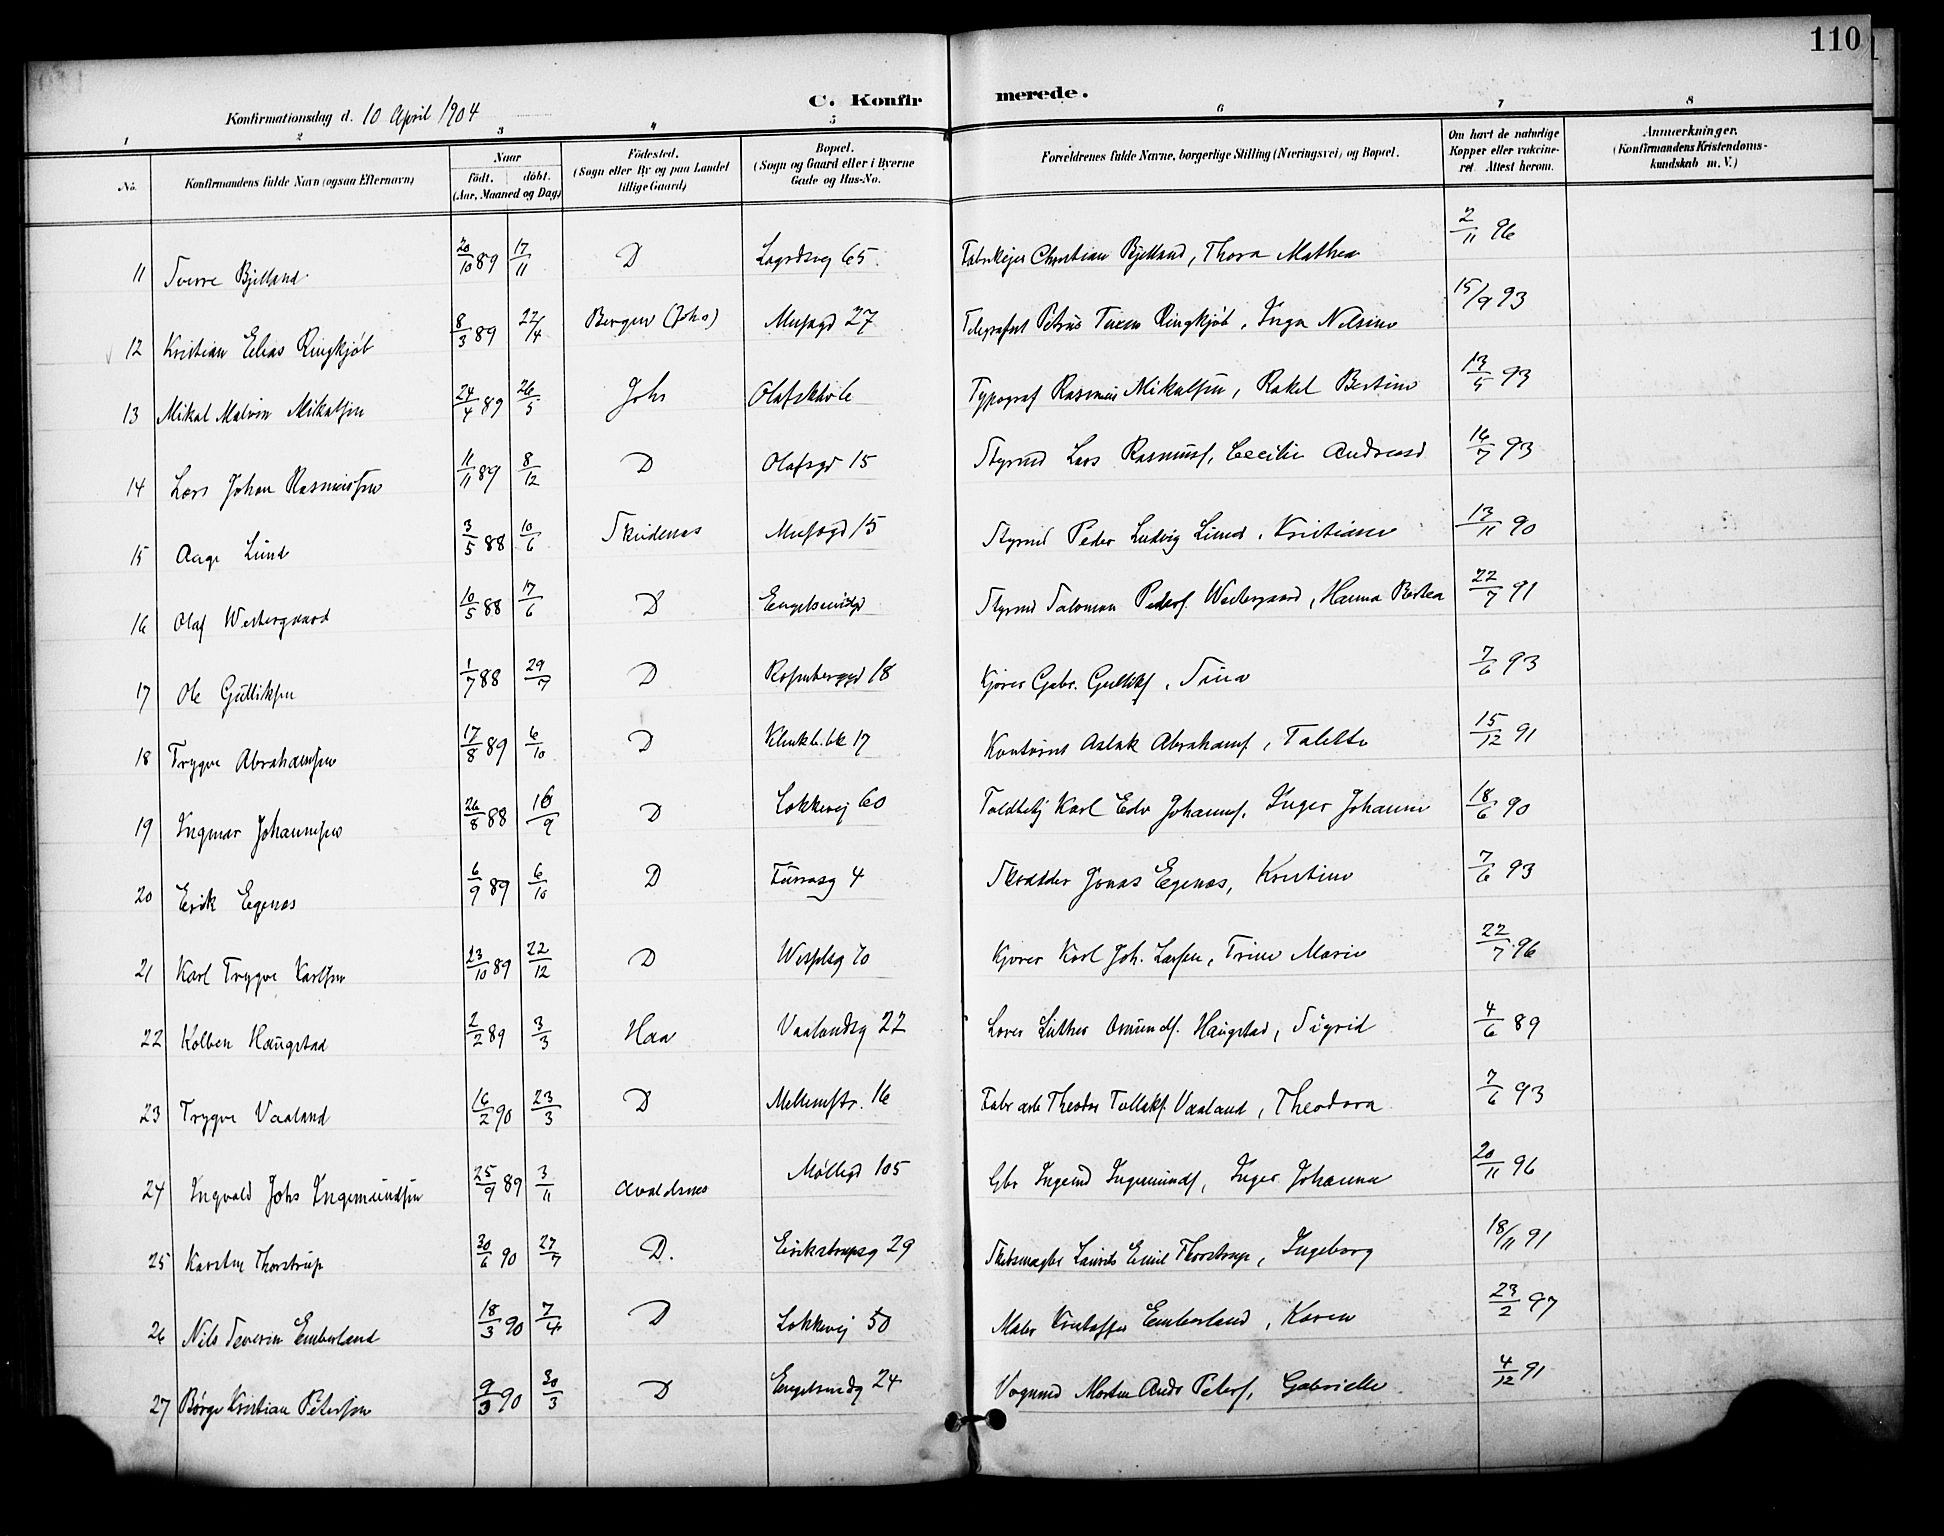 110
C. Konfirmerede.
Konfirmationsdag d. 10 April 1904
1 2 3 4 5 6 7 8
No.
Konfirmandens fulde Navn (ogsaa Efternavn)
Naar
født. døbt.
(Aar, Maaned og Dag)
Fødested.
(Sogn eller By og paa Landet
tillige Gaard)
Bopæl.
(Sogn og Gaard eller i Byerne
Gade og Hus-No.
Forældrenes fulde Navne, borgerlige Stilling (Næringsvei) og Bopæl.
Om havt de naturlige
Kopper eller vakcine-
ret. Attest herom.
Anmærkninger.
(Konfirmandens Kristendoms-
kundskab m. V.)
11 Sverre Bjelland 20/10 89 17/11 D Lagrdsvg 65. Fabrikejer Christian Bjelland, Thora Mathea 2/11 96
12 Kristian Elias Ringkjøb 8/3 89 22/4 Bergen (Johs) Musgd 27 Petrus Ringkjøb, Inga Nilsine 15/9 93
13 Mikal Malvin Mikalsen 24/4 89 26/5 Johs Typograf Rasmus Mikalsen, Rakel Bertine 13/5 93
14 Lars Johan Rasmussen 11/11 89 8/12 D Olafsgd 15 Styrmd Lars Rasmuss, Cecilie Andreasd 16/7 93
15 Aage Lund 3/5 88 10/6 Skudenes Musgd 15 Styrmd Peder Ludvig Lund, Kristiane 13/11 90
16 Olaf Westergaard 10/5 88 17/6 D Styrmd Salomon Peders. Westergaard, Hanna Bertea 22/7 91
17 Ole Gulliksen 1/7 88 29/7 D Rosenberggd 18 Kjører Gabr. Gulliks, Sina 7/6 93
18 Trygve Abrahamsen 17/8 89 6/10 D Klinkb.bk 17 Kontorist Aslak Abrahams, Talette 15/12 91
19 Ingmar Johannesen 26/8 88 16/9 D Løkkevej 60 Toldbetj Karl Edv Johannes, Inger Johanne 18/6 90
20 Erik Egenes 6/9 89 6/10 D 4 Skrædder Jonas Egenes, Kristine 7/6 93
21 Karl Trygve Karlsen 23/10 89 22/12 D Kjører Karl Joh. Larsen, Trine Marie 22/7 96
22 Kolben Haugstad 2/2 89 3/3 Haa Vaalandsg 22 Lærer Luther Osmunds. Haugstad, Sigrid 4/6 89
23 Trygve Vaaland 16/2 90 23/3 D Mellemstr. 16 Fabr arb Theodor Tollaks. Vaaland, Theodora 7/6 93
24 Ingvald Johs Ingemundsen 25/9 89 3/11 Avaldsnes Møllegd 105 Gbr Ingemd Ingemunds, Inger Johanna 20/11 96
25 Karsten Thorstrup 30/6 90 27/7 D. 29 Laurits Emil Thorstrup, Ingeborg 18/11 91
26 Nils Severin Emberland 18/3 90 7/4 D Løkkevej 50 Maler Kristoffer Emberland, Karen 23/2 97
27 Børge Kristian Petersen 9/3 90 30/3 D Engelsmdg 24 Vognmd Morten Andr Peters, Gabrielle 4/12 91